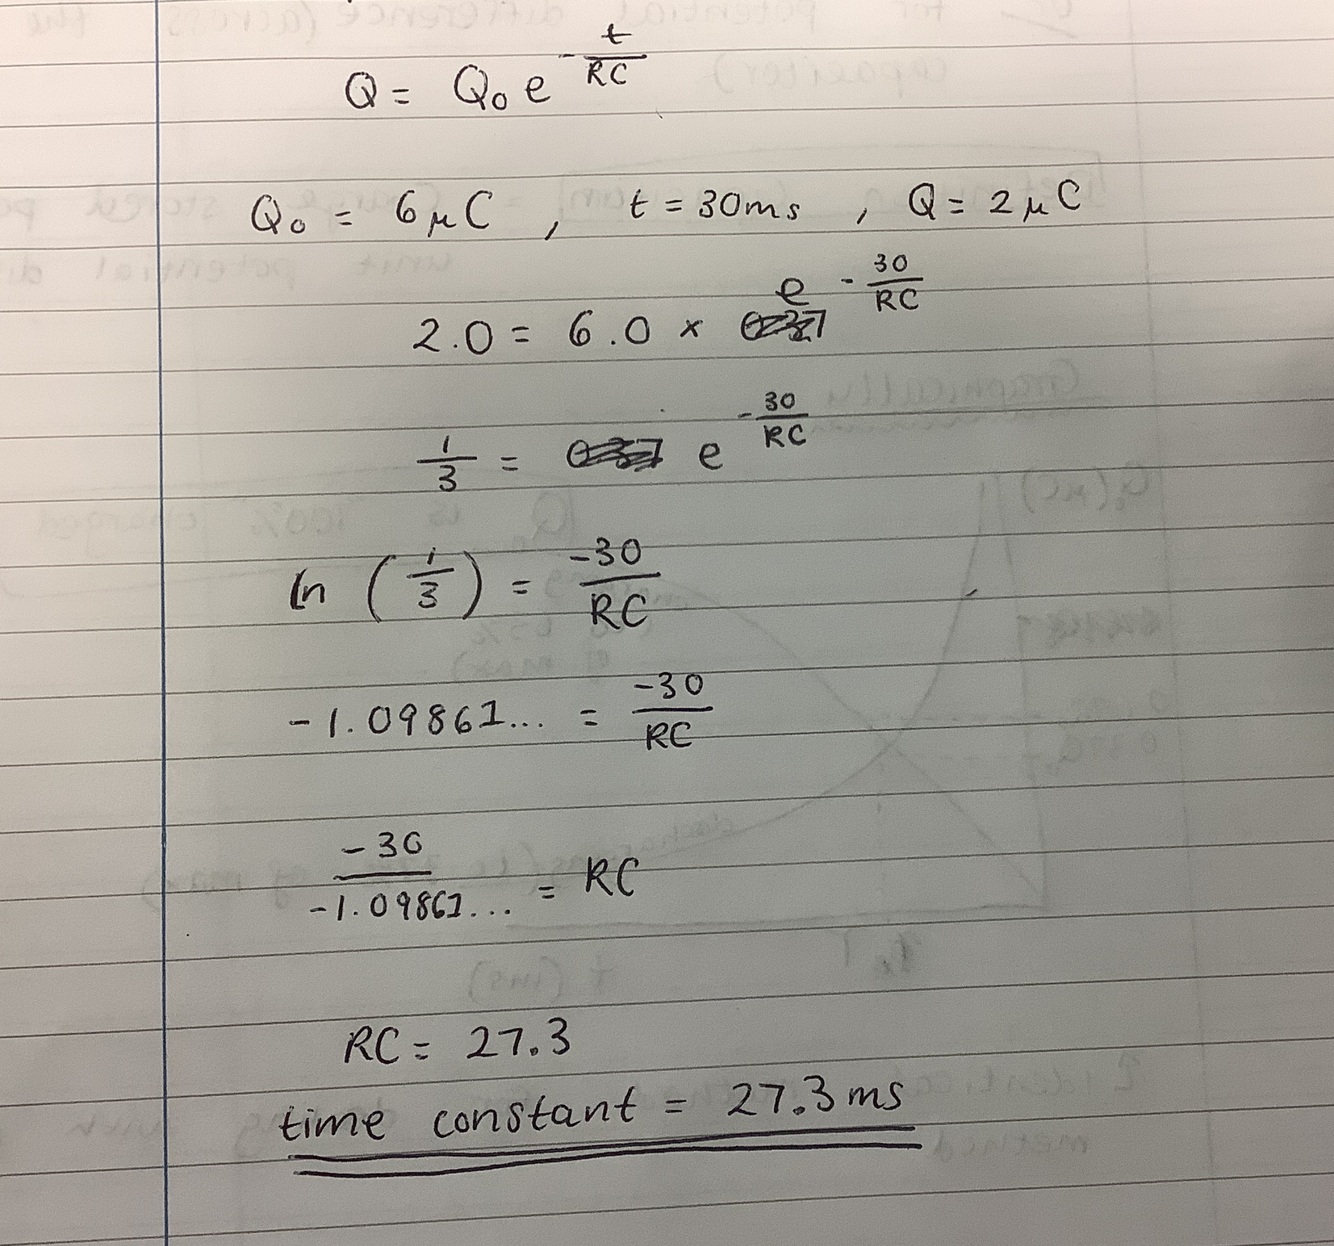 Q = Q₀ e^(-t/RC)
Q₀ = 6 μC , t = 30ms , Q = 2 μC
2.0 = 6.0 × e^(-30/RC)
1/3 = e^(-30/RC)
ln (1/3) = -30/RC
-1.09861... = -30/RC
-30/-1.09861... = RC
RC = 27.3
time constant = 27.3 ms